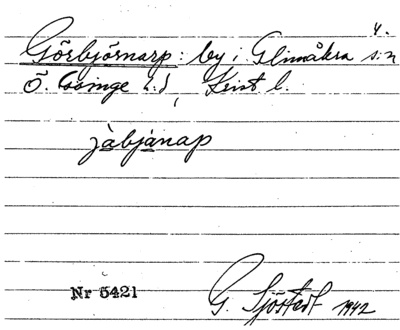 4.
Görbjörnarp: by i Glimåkra s:n
Ö. Göinge h.d, Krist l.
jàbjánap
Nr 5421
G. Sjöstedt 1942